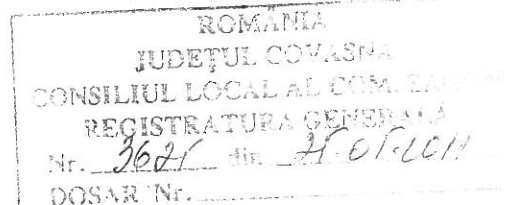 ROMÂNIA
JUDEŢUL COVASNA
CONSILIUL LOCAL AL COM.
REGISTRATURA GENERALĂ
Nr. 3621 din
DOSAR Nr.